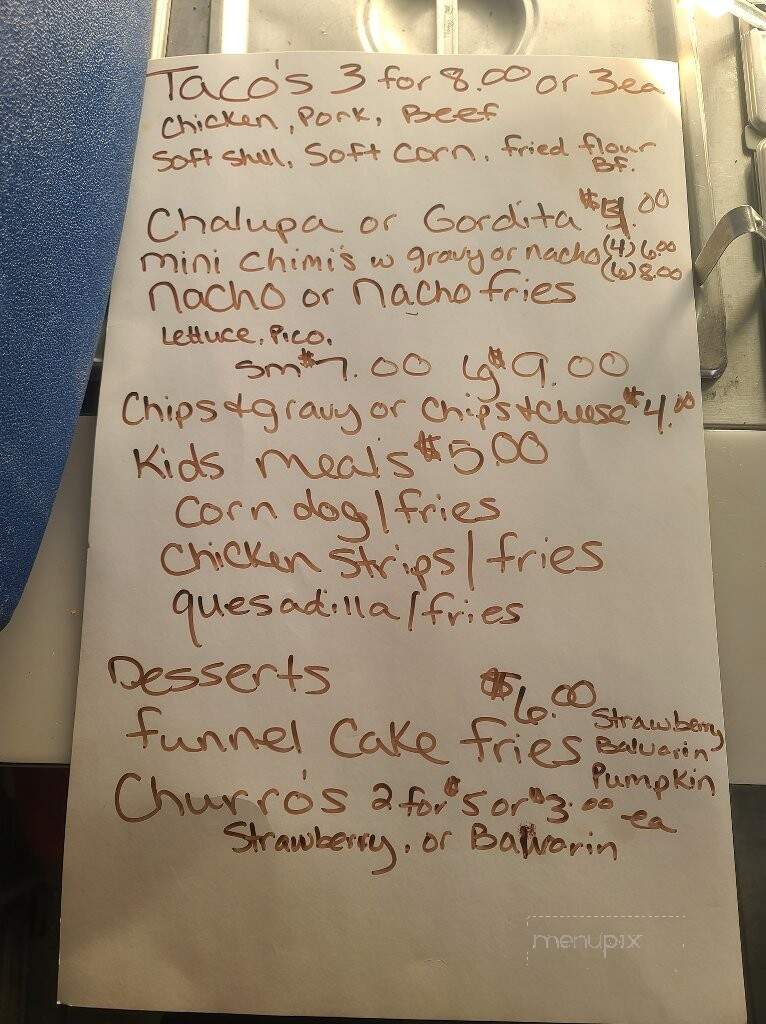 Taco's 3 for 8.00 or 3ea
Chicken, Pork, Beef
Soft shell, Soft Corn, fried flour
BF.
Chalupa or Gordita $ .00
mini Chimi's w gravy or nacho (4) 6.00
(6) 8.00
Nacho or Nacho fries
Lettuce, Pico,
sm $7.00 lg $9.00
Chips & gravy or Chips & Cheese $4.00
Kids meals $5.00
Corn dog/fries
Chicken Strips/fries
quesadilla/fries
Desserts $6.00
funnel Cake fries Strawberry
Balvarin
Pumpkin
Churro's 2 for $5 or $3.00 ea
Strawberry, or Balvarin
menupix